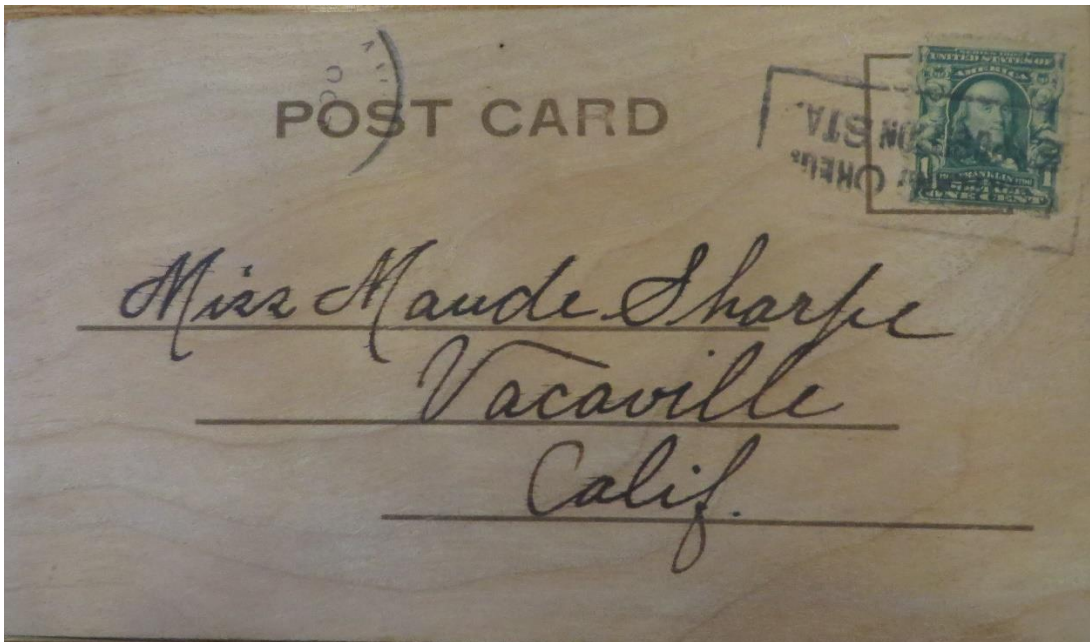 POST CARD
UNITED STATES OF
AMERICA
FRANKLIN
ONE CENT
OREG.
STA.
Miss Maude Sharpe
Vacaville
Calif.